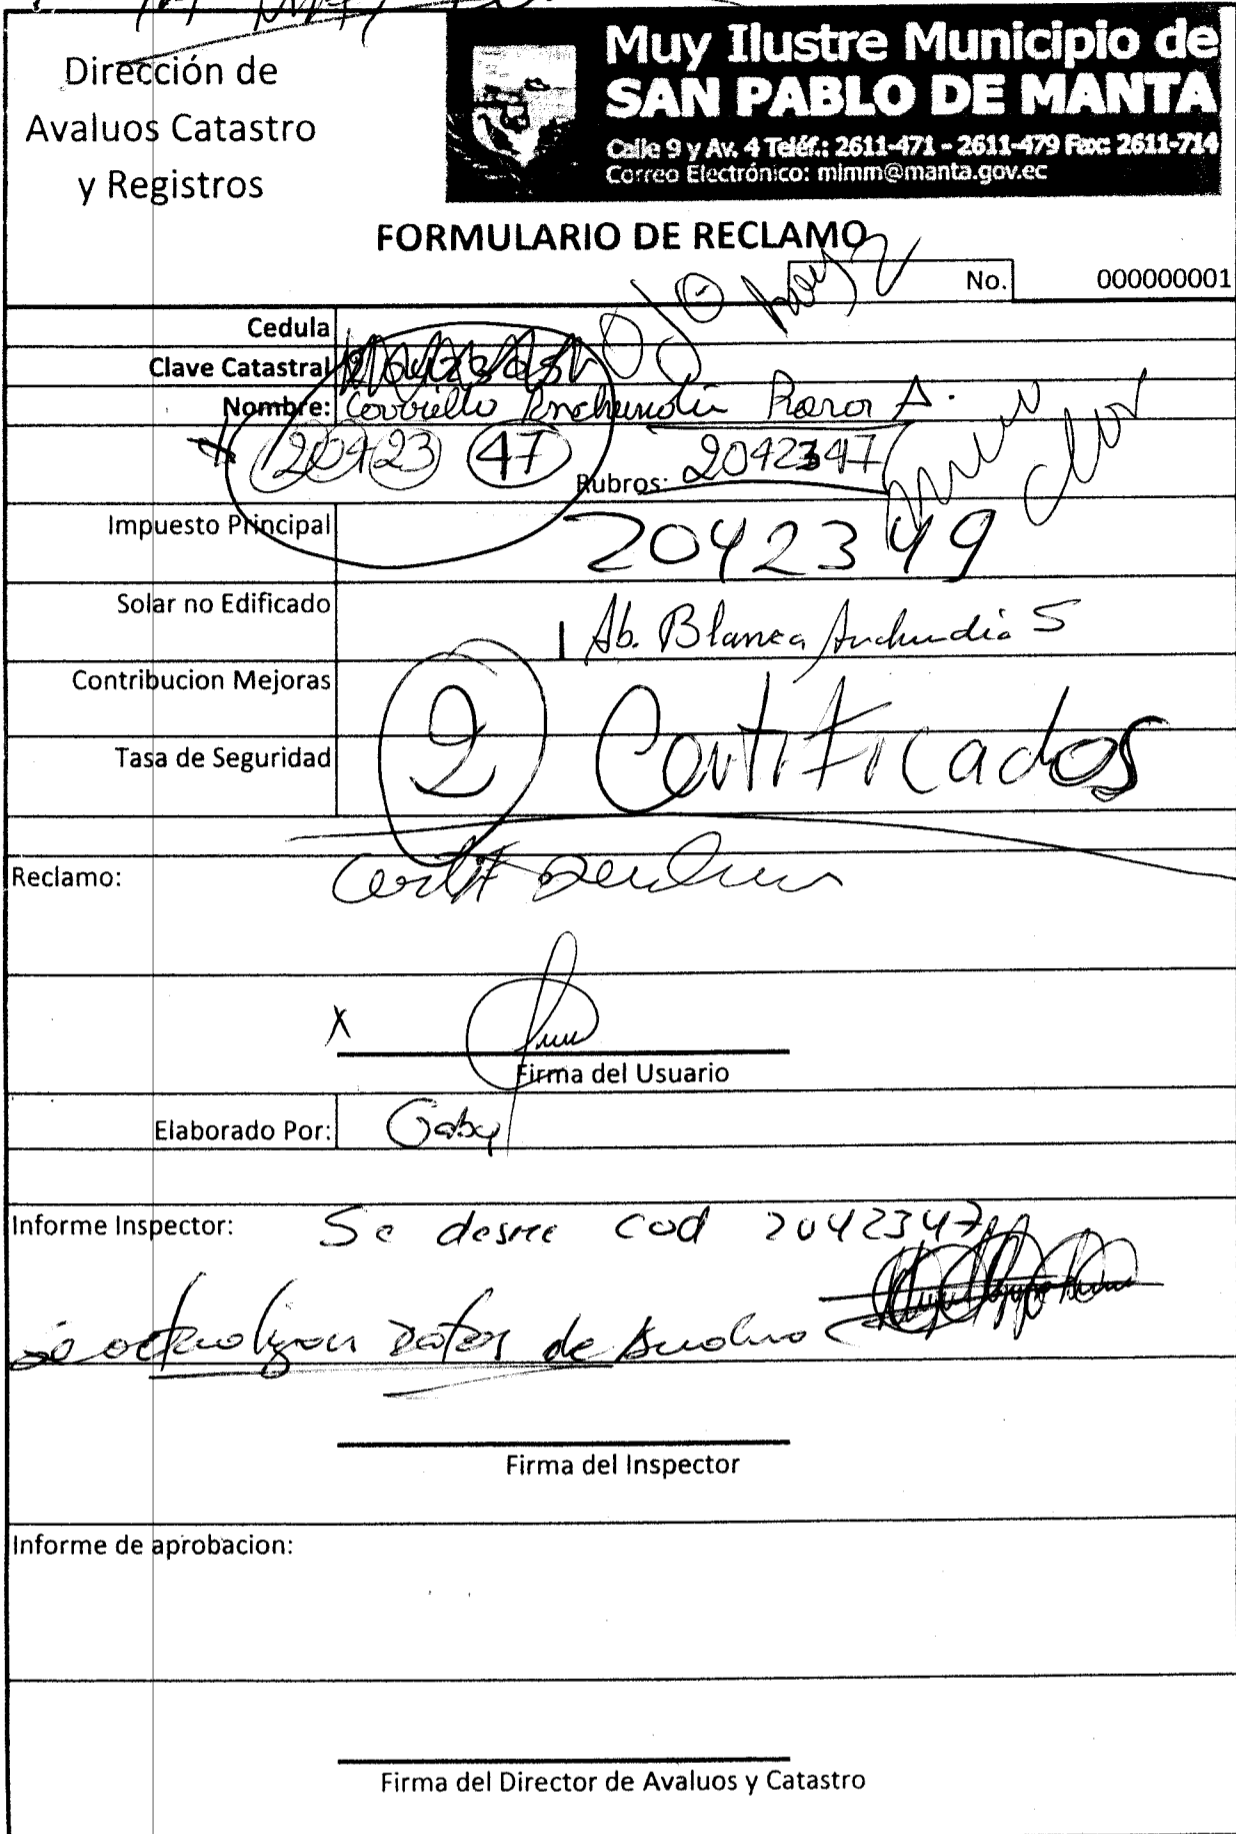 Dirección de
Avaluos Catastro
y Registros
Muy Ilustre Municipio de
SAN PABLO DE MANTA
Calle 9 y Av. 4 Teléf.: 2611-471 - 2611-479 Fax: 2611-714
Correo Electrónico: mimm@manta.gov.ec
FORMULARIO DE RECLAMO
No. 000000001
OJO hay 2
Cedula
Clave Catastral
Nombre: Anchundia A.
20423 47
Rubros: 2042347
Impuesto Principal 2042349
Solar no Edificado
Ab. Blanca Anchundia S
Contribucion Mejoras
2 Certificados
Tasa de Seguridad
Reclamo:
X
Firma del Usuario
Elaborado Por: Gaby
Informe Inspector: Se cod 2042347
datos de
Firma del Inspector
Informe de aprobacion:
Firma del Director de Avaluos y Catastro